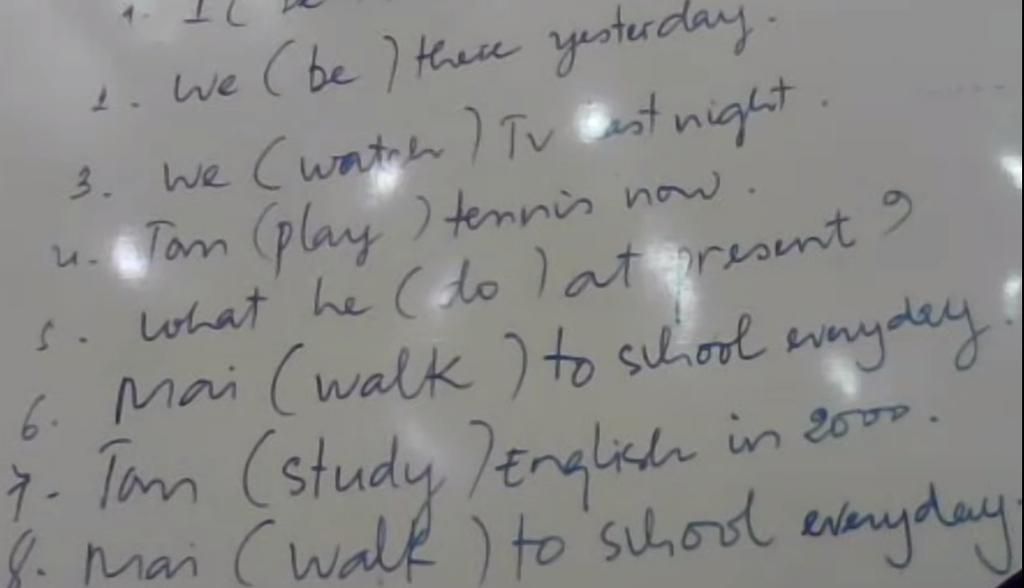 1. I (be
2. We (be) there yesterday.
3. We (watch) TV last night.
4. Tam (play) tennis now.
5. What he (do) at present?
6. Mai (walk) to school everyday.
7. Tam (study) English in 2000.
8. Mai (walk) to school everyday.